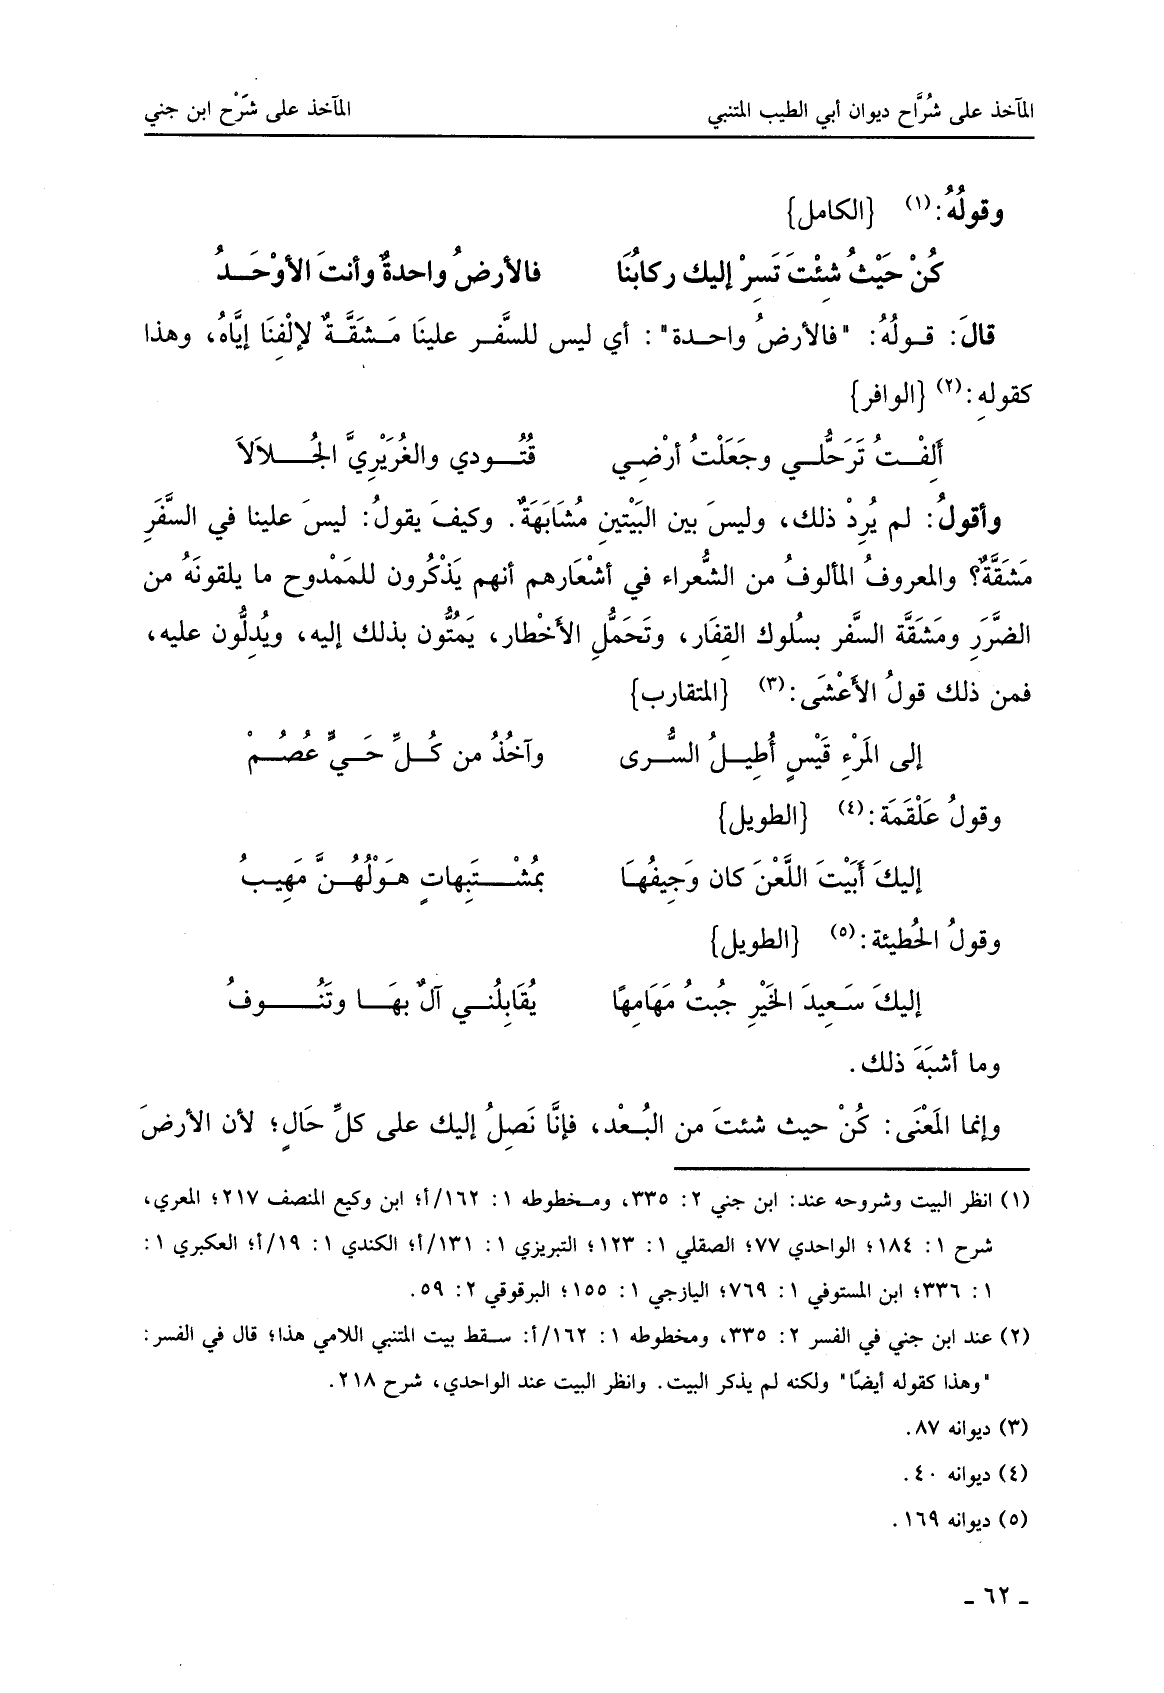 المآخذ على شُرَّاح ديوان أبي الطيب المتنبي المآخذ على شَرْح ابن جني
وقولُهُ:(١) {الكامل}
كُنْ حَيْثُ شِئْتَ تَسِرْ إليك ركابُنَا فالأرضُ واحدةٌ وأنتَ الأوْحَــدُ
قالَ: قـولُهُ: "فالأرضُ واحـدة": أي ليس للسَّفـر علينَا مَـشَقَّـةٌ لإلْفِنَا إيَّاه، وهذا
كقولِهِ:(٢) {الوافر}
أَلِفْــتُ تَرَحُّلــي وجَعَلْتُ أرْضِــي قُتُــودي والغُرَيْرِيَّ الجُــــلاَلاَ
وأقولُ: لم يُرِدْ ذلك، وليسَ بين البَيْتينِ مُشَابَهَةٌ. وكيفَ يقولُ: ليسَ علينا في السَّفَرِ
مَشَقَّةٌ؟ والمعروفُ المألوفُ من الشُّعراء في أشْعَارهم أنهم يَذْكُرون للمَمْدوح ما يلقونَهُ من
الضَّرَرِ ومَشَقَّة السَّفر بسُلوك القِفَار، وتَحَمُّلِ الأَخْطار، يَمُتُّون بذلك إليه، ويُدِلُّون عليه،
فمن ذلك قولُ الأَعْشَى:(٣) {المتقارب}
إلى المَرْءِ قَيْسٍ أُطِيــلُ السُّـرى وآخُذُ من كُــلِّ حَــيٍّ عُصُــمْ
وقولُ عَلْقَمَة:(٤) {الطويل}
إليكَ أَبَيْتَ اللَّعْنَ كان وَجِيفُهَـا بمُشْــتَبِهاتٍ هَـوْلُهُــنَّ مَهِيبُ
وقولُ الحُطيئة:(٥) {الطويل}
إليكَ سَـعِيدَ الخَيْرِ جُبتُ مَهَامِهًا يُقَابِلُنــي آلٌ بهَــا وتَنُـــوفُ
وما أشبَهَ ذلك.
وإنما المَعْنَى: كُنْ حيث شئتَ من البُـعْد، فإنَّا نَصِلُ إليك على كلِّ حَالٍ؛ لأن الأرضَ
(١) انظر البيت وشروحه عند: ابن جني ٢: ٣٣٥، ومـخطوطه ١: ١٦٢/أ؛ ابن وكيع المنصف ٢١٧؛ المعري،
شرح ١: ١٨٤؛ الواحدي ٧٧؛ الصقلي ١: ١٢٣؛ التبريزي ١: ١٣١/أ؛ الكندي ١: ١٩/أ؛ العكبري ١:
١: ٣٣٦؛ ابن المستوفي ١: ٧٦٩؛ اليازجي ١: ١٥٥؛ البرقوقي ٢: ٥٩.
(٢) عند ابن جني في الفسر ٢: ٣٣٥، ومخطوطه ١: ١٦٢/أ: سـقط بيت المتنبي اللامي هذا؛ قال في الفسر:
"وهذا كقوله أيضًا" ولكنه لم يذكر البيت. وانظر البيت عند الواحدي، شرح ٢١٨.
(٣) ديوانه ٨٧.
(٤) ديوانه ٤٠.
(٥) ديوانه ١٦٩.
ـ ٦٢ ـ